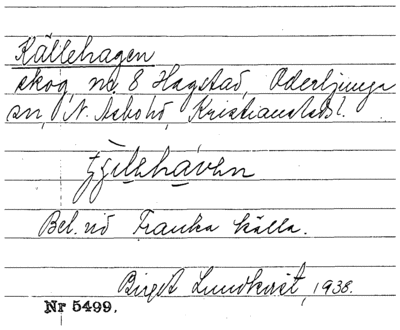 Källehagen
skog, nr. 8 Hagstad, Oderljunga
sn, N. Åsbohd, Kristianstads l.
tjilehaven
Bel. vid Franka källa.
Birgit Lundkvist, 1938.
Nr 5499.